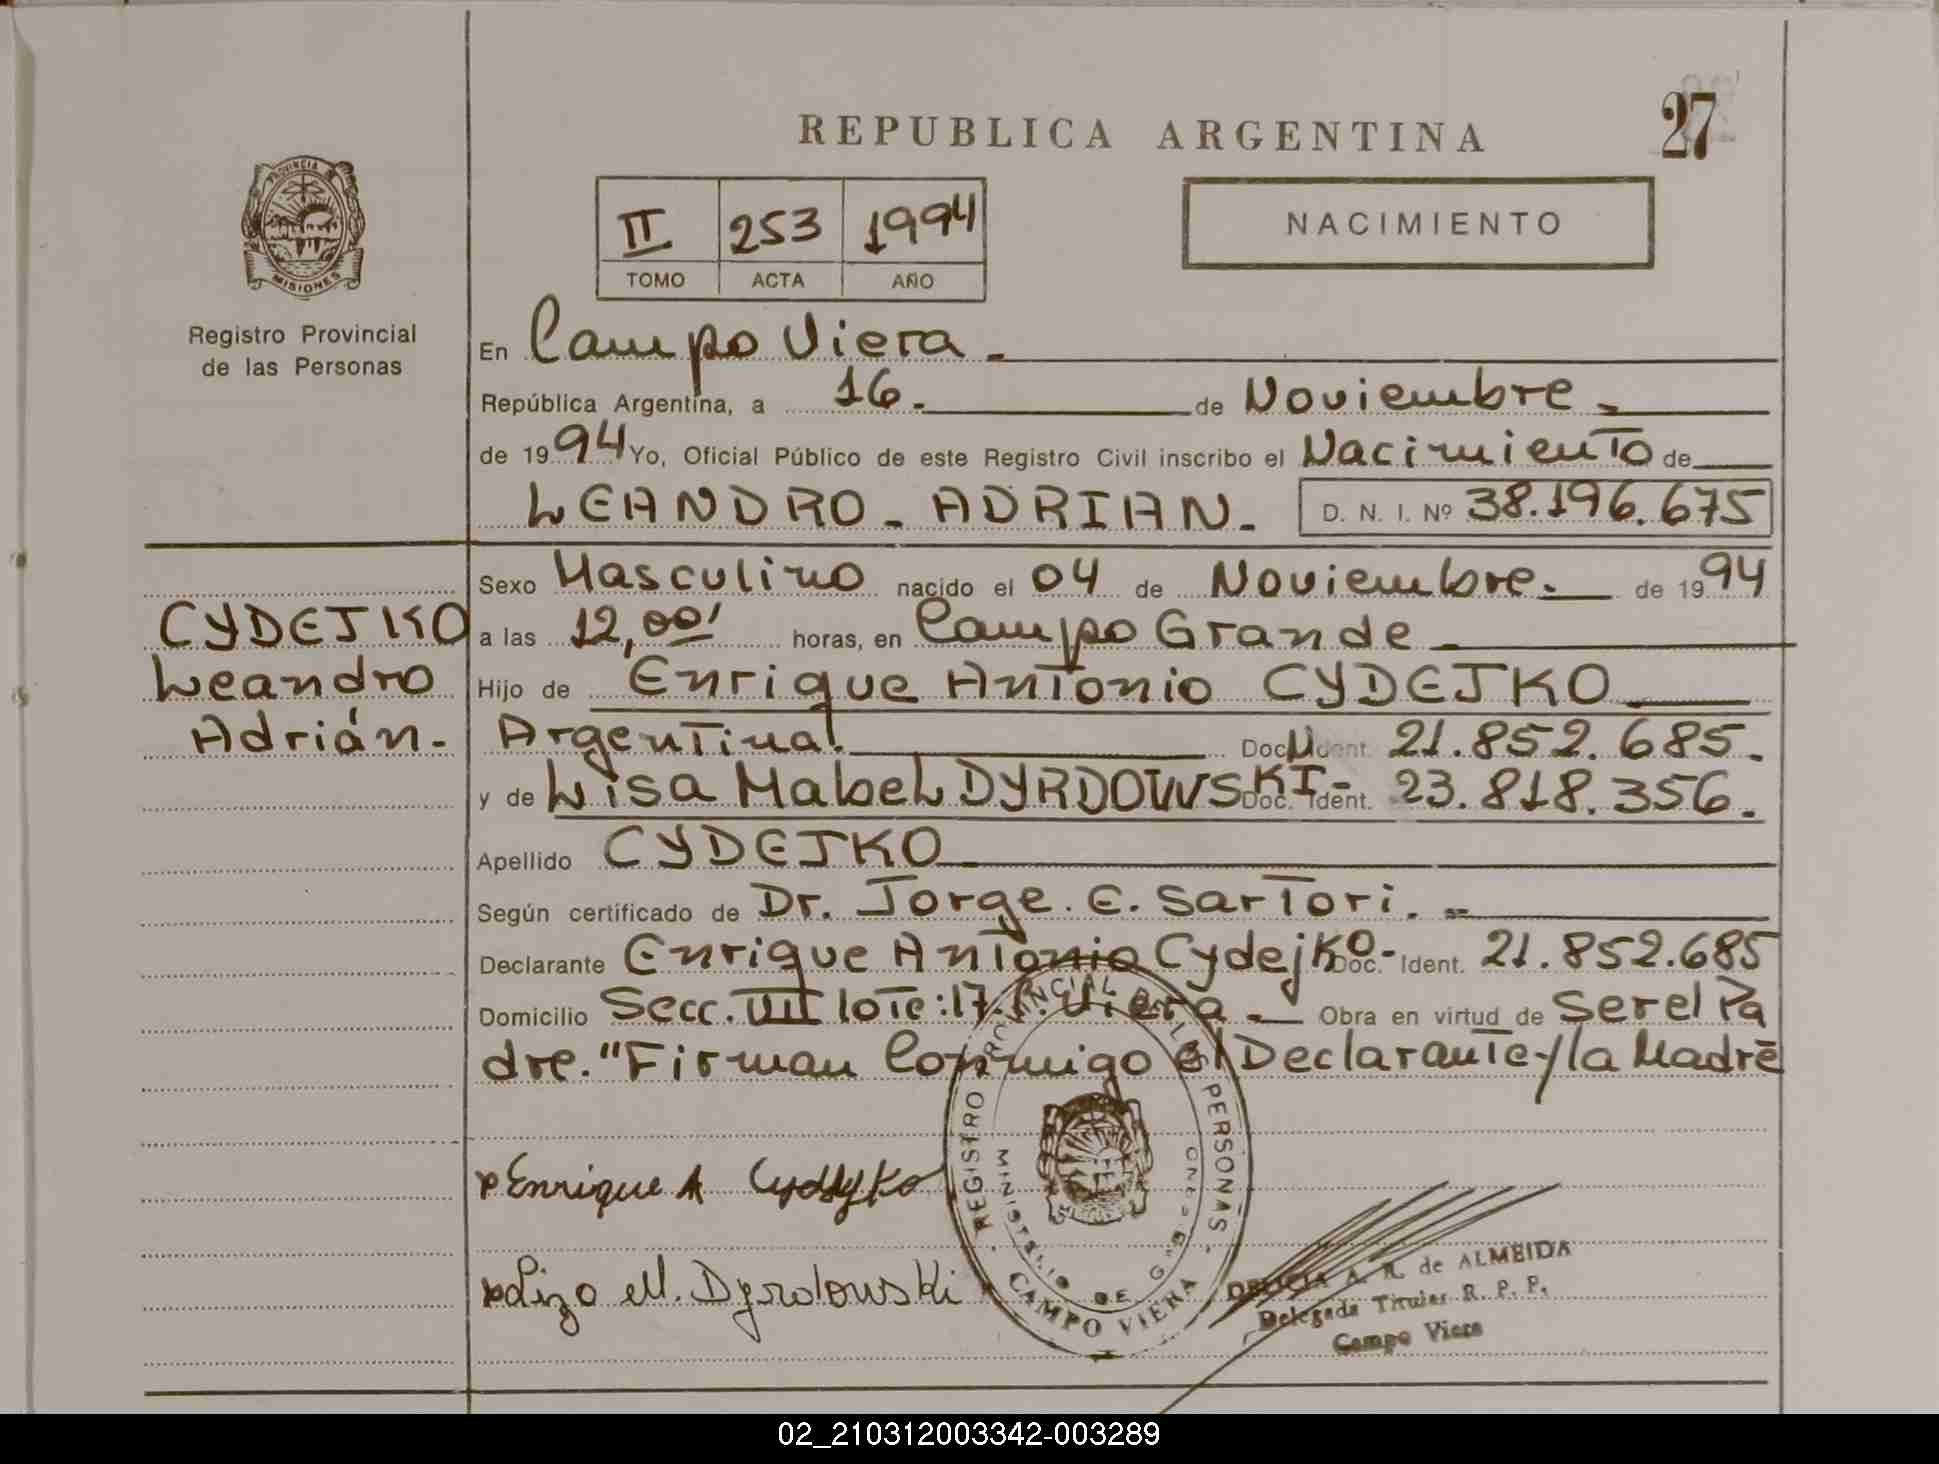 27
REPUBLICA ARGENTINA
NACIMIENTO
II 253 1994
TOMO ACTA AÑO
PROVINCIA DE
MISIONES
Registro Provincial
de las Personas
En Campo Viera -
República Argentina, a 16. de Noviembre.
de 1994 Yo, Oficial Público de este Registro Civil inscribo el Nacimiento de
LEANDRO - ADRIAN. D. N. I. Nº 38.196.675
CYDEJKO
Leandro
Adrián.
Sexo Masculino nacido el 04 de Noviembre. de 1994
a las 12,00' horas, en Campo Grande
Hijo de Enrique Antonio CYDEJKO
Argentina. Doc. Ident. 21.852.685.
y de Lisa Mabel DYRDOWSKI- Doc. Ident. 23.818.356.
Apellido CYDEJKO
Según certificado de Dr. Jorge. E. Sartori. -
Declarante Enrique Antonio Cydejko- Doc. Ident. 21.852.685
Domicilio Secc. VIII lote:17. C. Viera - Obra en virtud de Ser el Pa
dre. "Firman Conmigo el Declarante y la Madre
Enrique A Cydejko
Liza M. Dyrdowski
REGISTRO PROVINCIAL DE LAS PERSONAS
MINISTERIO DE GOBIERNO
CAMPO VIERA
DELICIA A. R. de ALMEIDA
Delegada Titular R. P. P.
Campo Viera
02_210312003342-003289